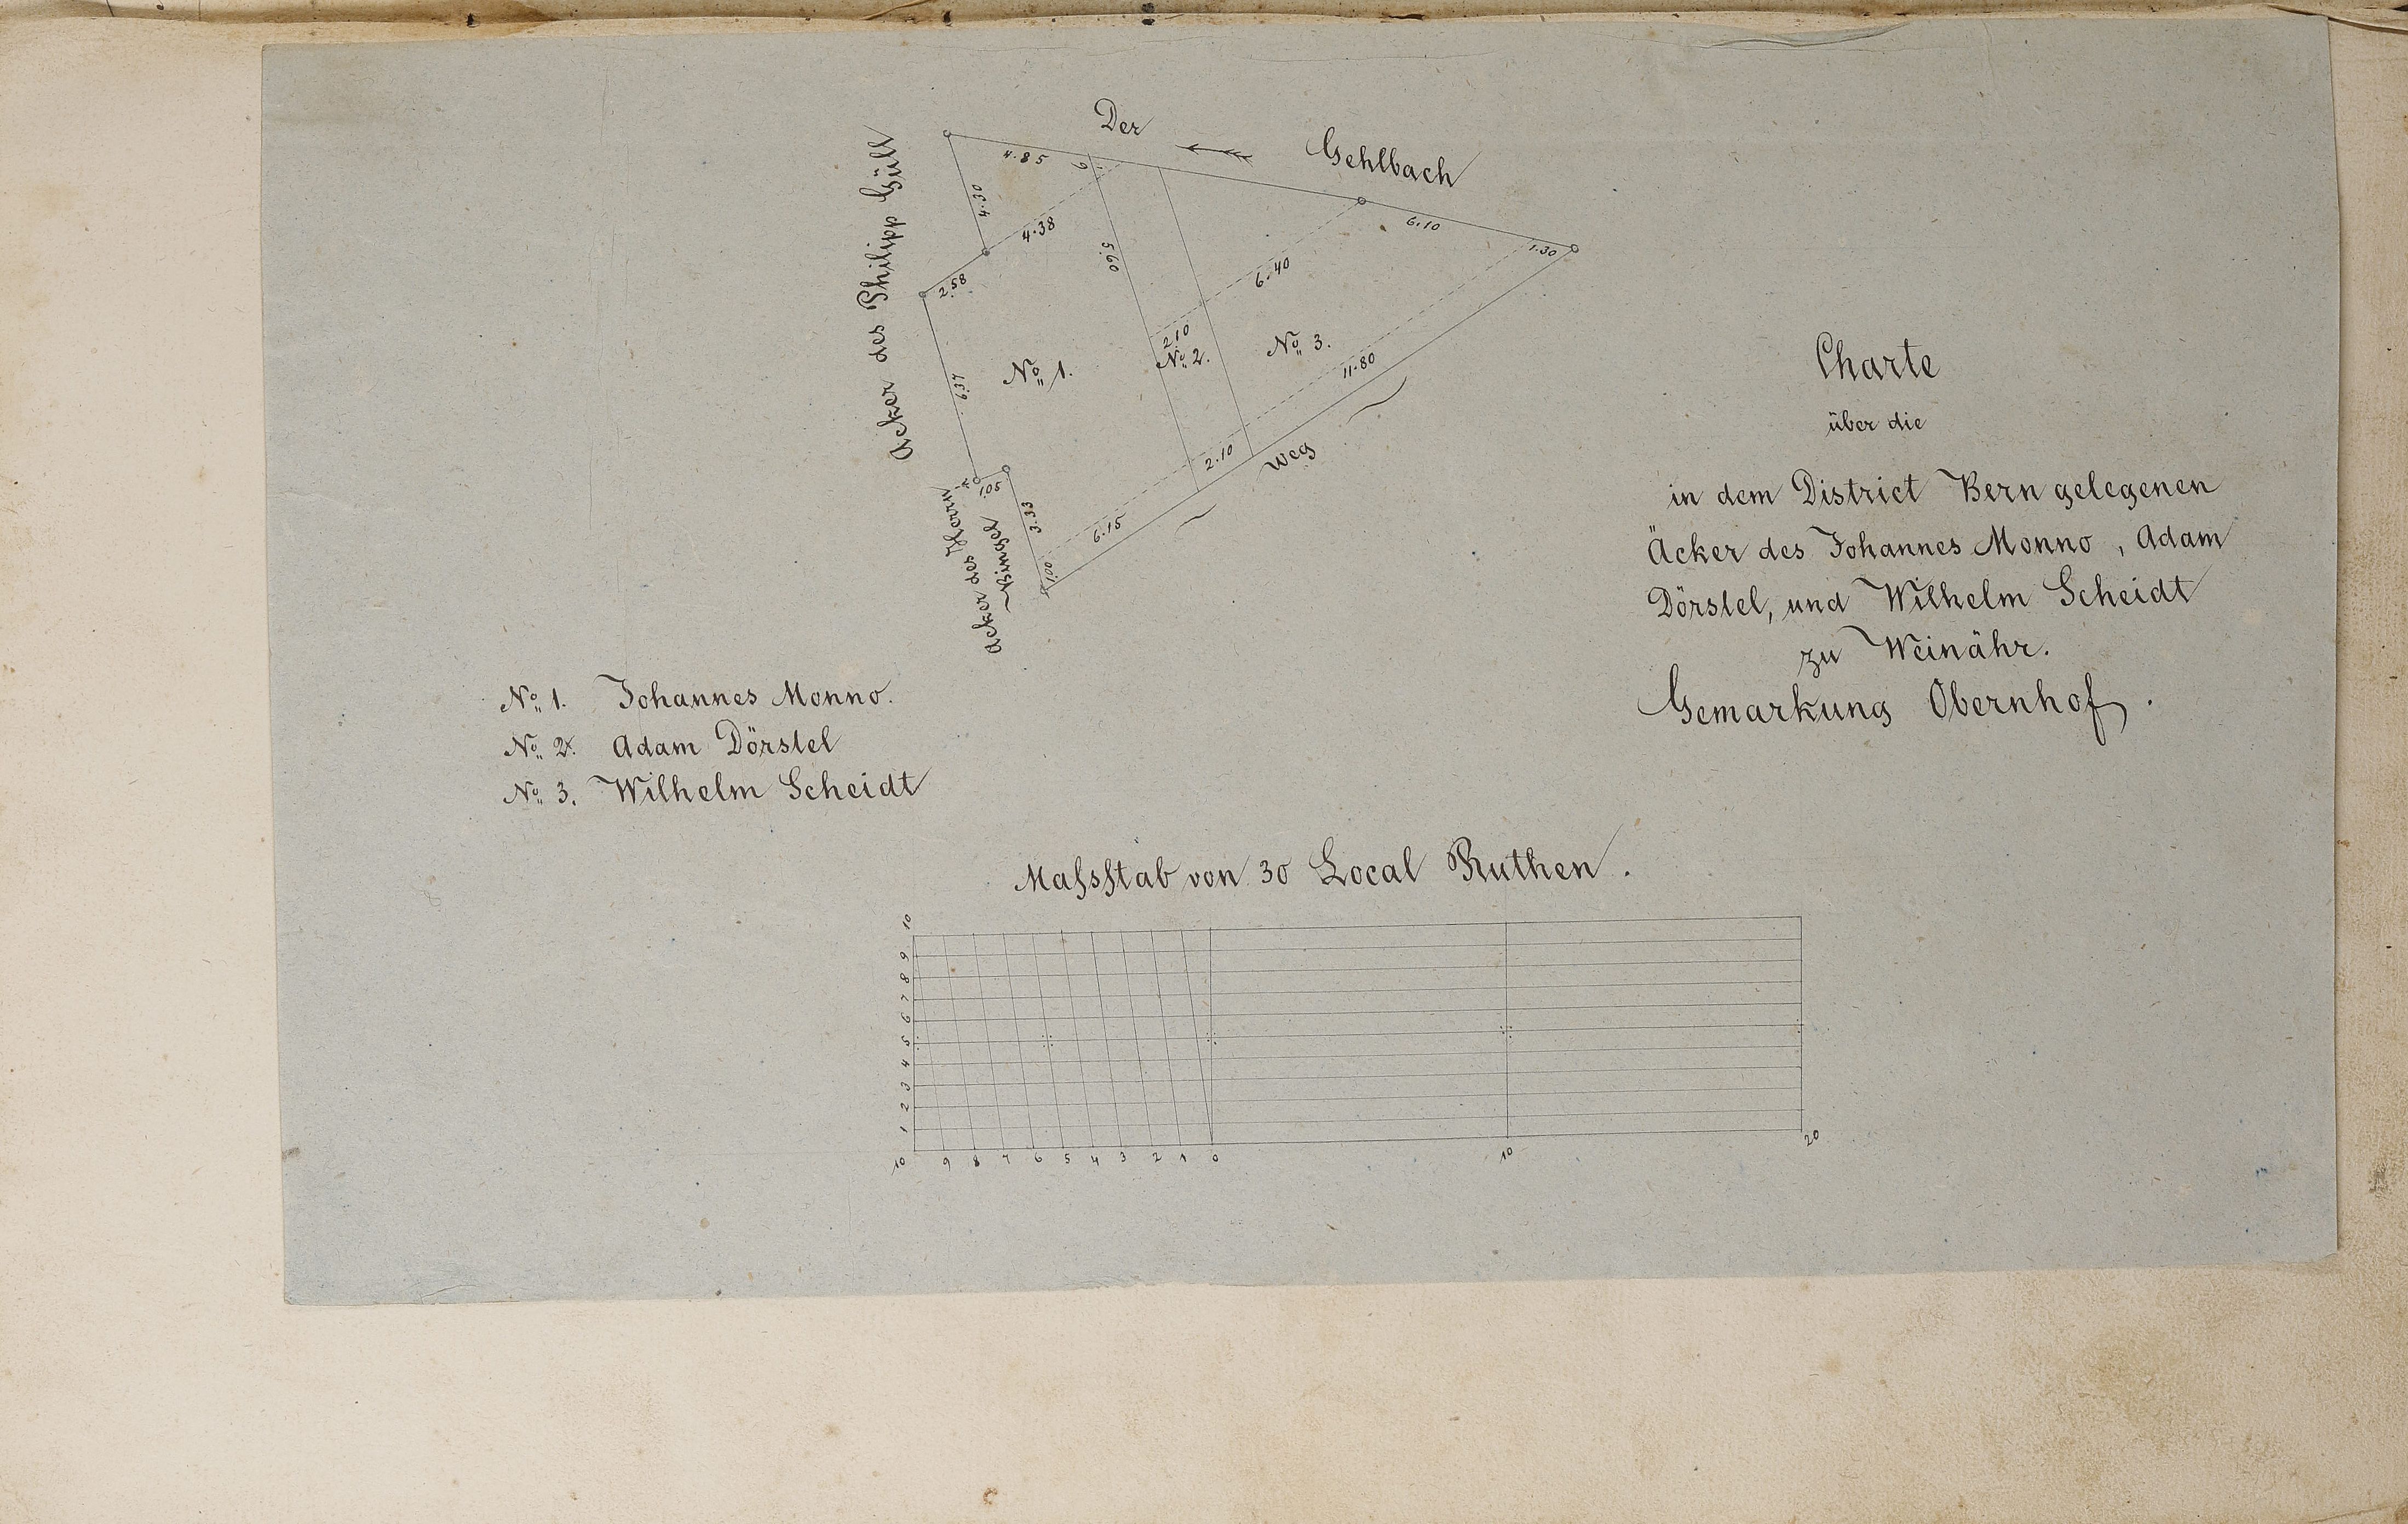 Der Gehlbach
4.85
6
4.30
4.38
2.58
5.60
6.10
1.30
6.40
2.10
No 1.
No 2.
No 3.
11.80
6.37
1.05
3.33
2.10
6.15
1.00
Weg
Acker des Philipp Güll
Acker des Herrn
Bingel
Charte
über die
in dem District Bern gelegenen
Äcker des Johannes Monno, Adam
Dörstel, und Wilhelm Scheidt
zu Weinähr.
Gemarkung Obernhof.
No 1. Johannes Monno.
No 2. Adam Dörstel
No 3. Wilhelm Scheidt
Maſsſtab von 30 Local Ruthen.
10
9
8
7
6
5
4
3
2
1
10 9 8 7 6 5 4 3 2 1 0 10 20